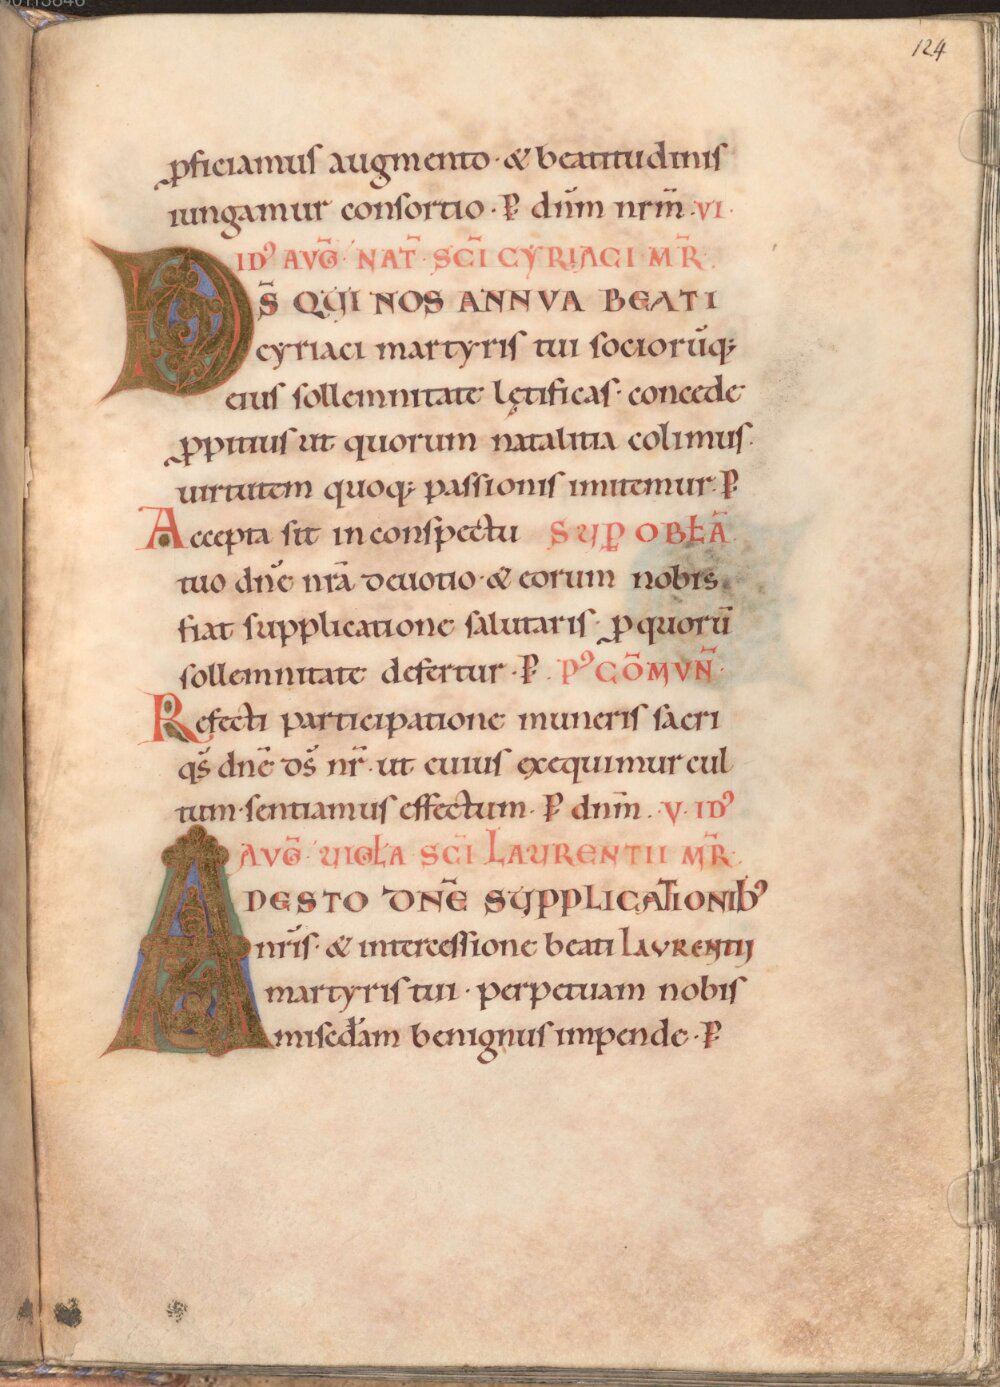 124
ꝓficiamus augmento · & beatitudinis
iungamur consortio · P̱ dñm nrm̄ · VI ·
ID᾽ AVḠ · NAT̄ · SC̄I CYRIACI MR̄ ·
DS̄ QUI NOS ANNVA BEATI
cyriaci martyris tui sociorūq;
eius sollemnitate lętificas · concede
ꝓpitius ut quorum natalitia colimus ·
uirtutem quoq; passionis imitemur · P̱
Accepta sit in conspectu SUP̱ OBŁĀ
tuo dn̄e nr̄a deuotio · & eorum nobis
fiat supplicatione salutaris · ꝓ quorū
sollemnitate defertur · P̱ · P᾽ CŌMVN̄ ·
Refecti participatione muneris sacri
qs̄ dn̄e ds̄ nr̄ · ut cuius exequimur cul
tum · sentiamus effectum · P̱ dnm̄ · V · ID᾽
AVḠ · UIGŁA SC̄I LAURENTII MR̄ ·
ADESTO DN̄E SUPPLICATIONIB᾽
nr̄is · & intercessione beati LAVRENTII
martyris tui · perpetuam nobis
misc̄dam benignus impende · P̱